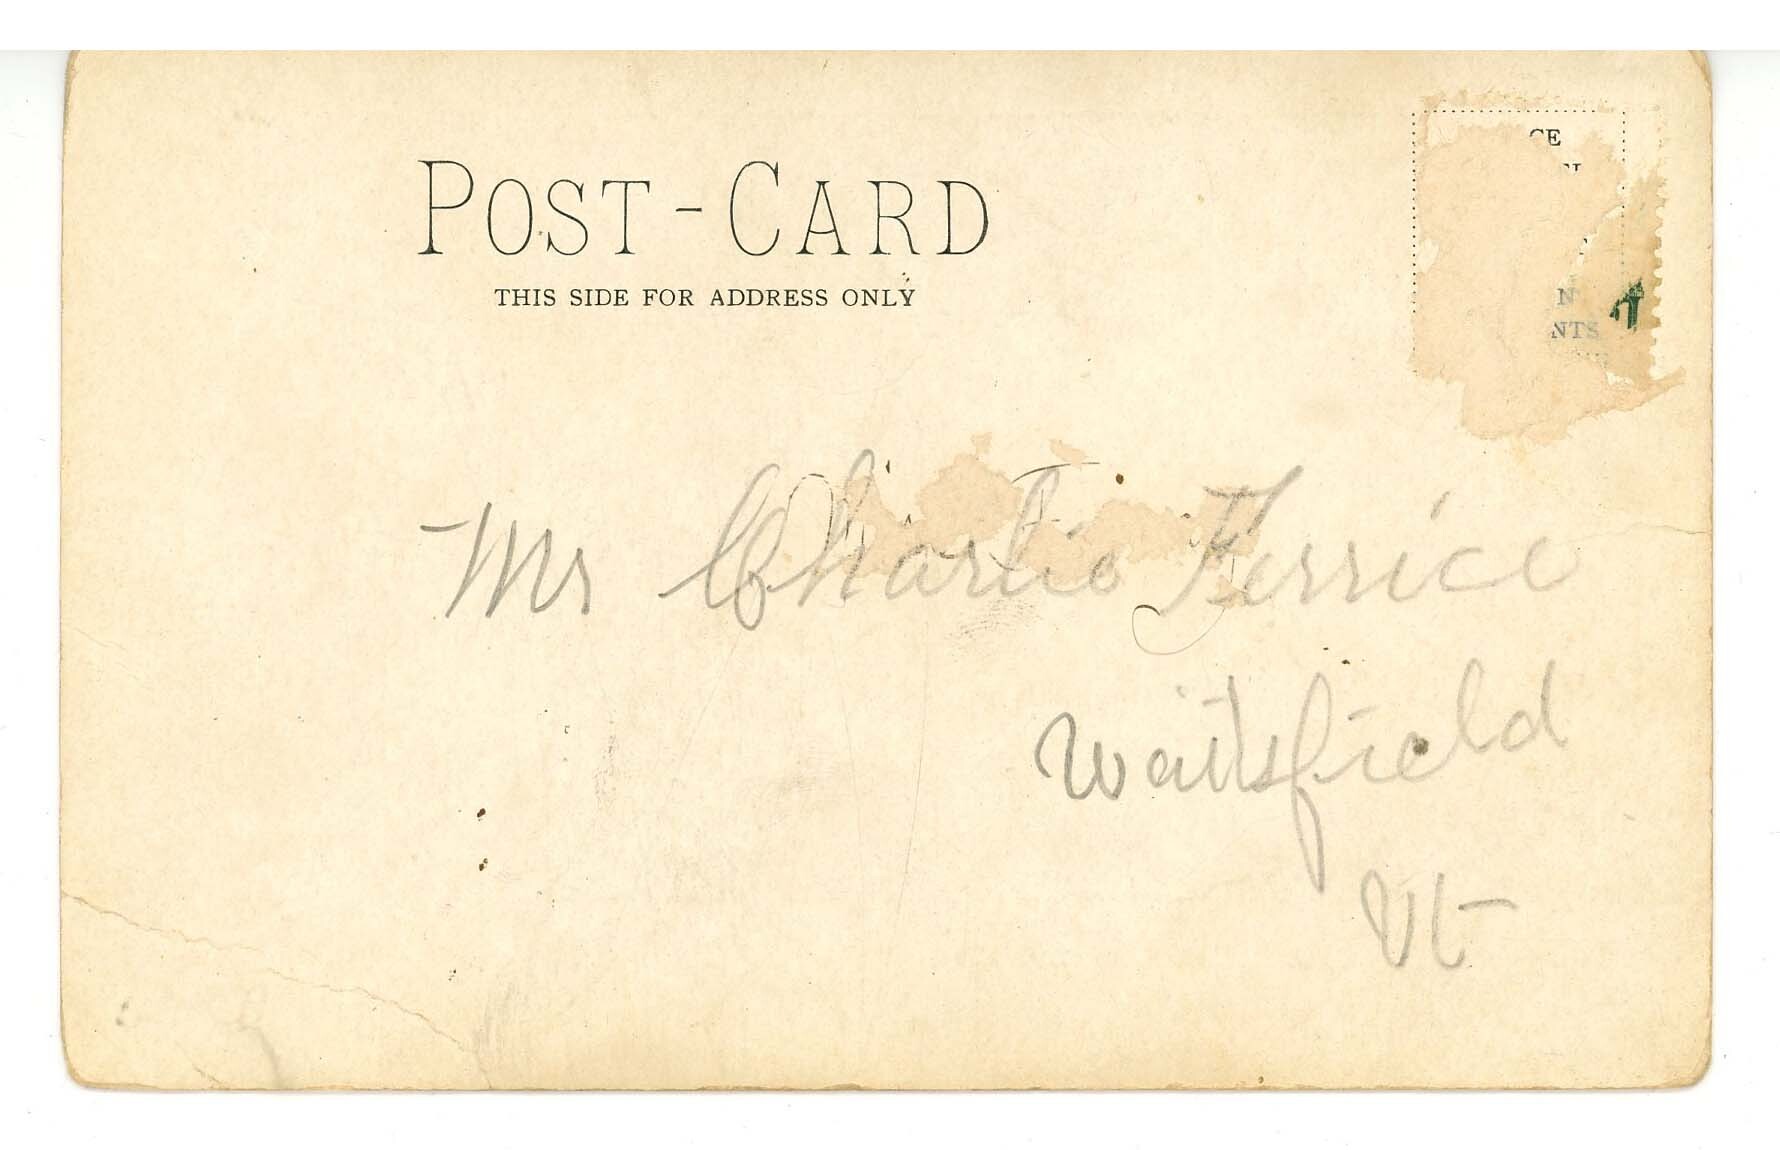 POST-CARD
THIS SIDE FOR ADDRESS ONLY
Mr Charlie Ferrice
Waitsfield
Vt